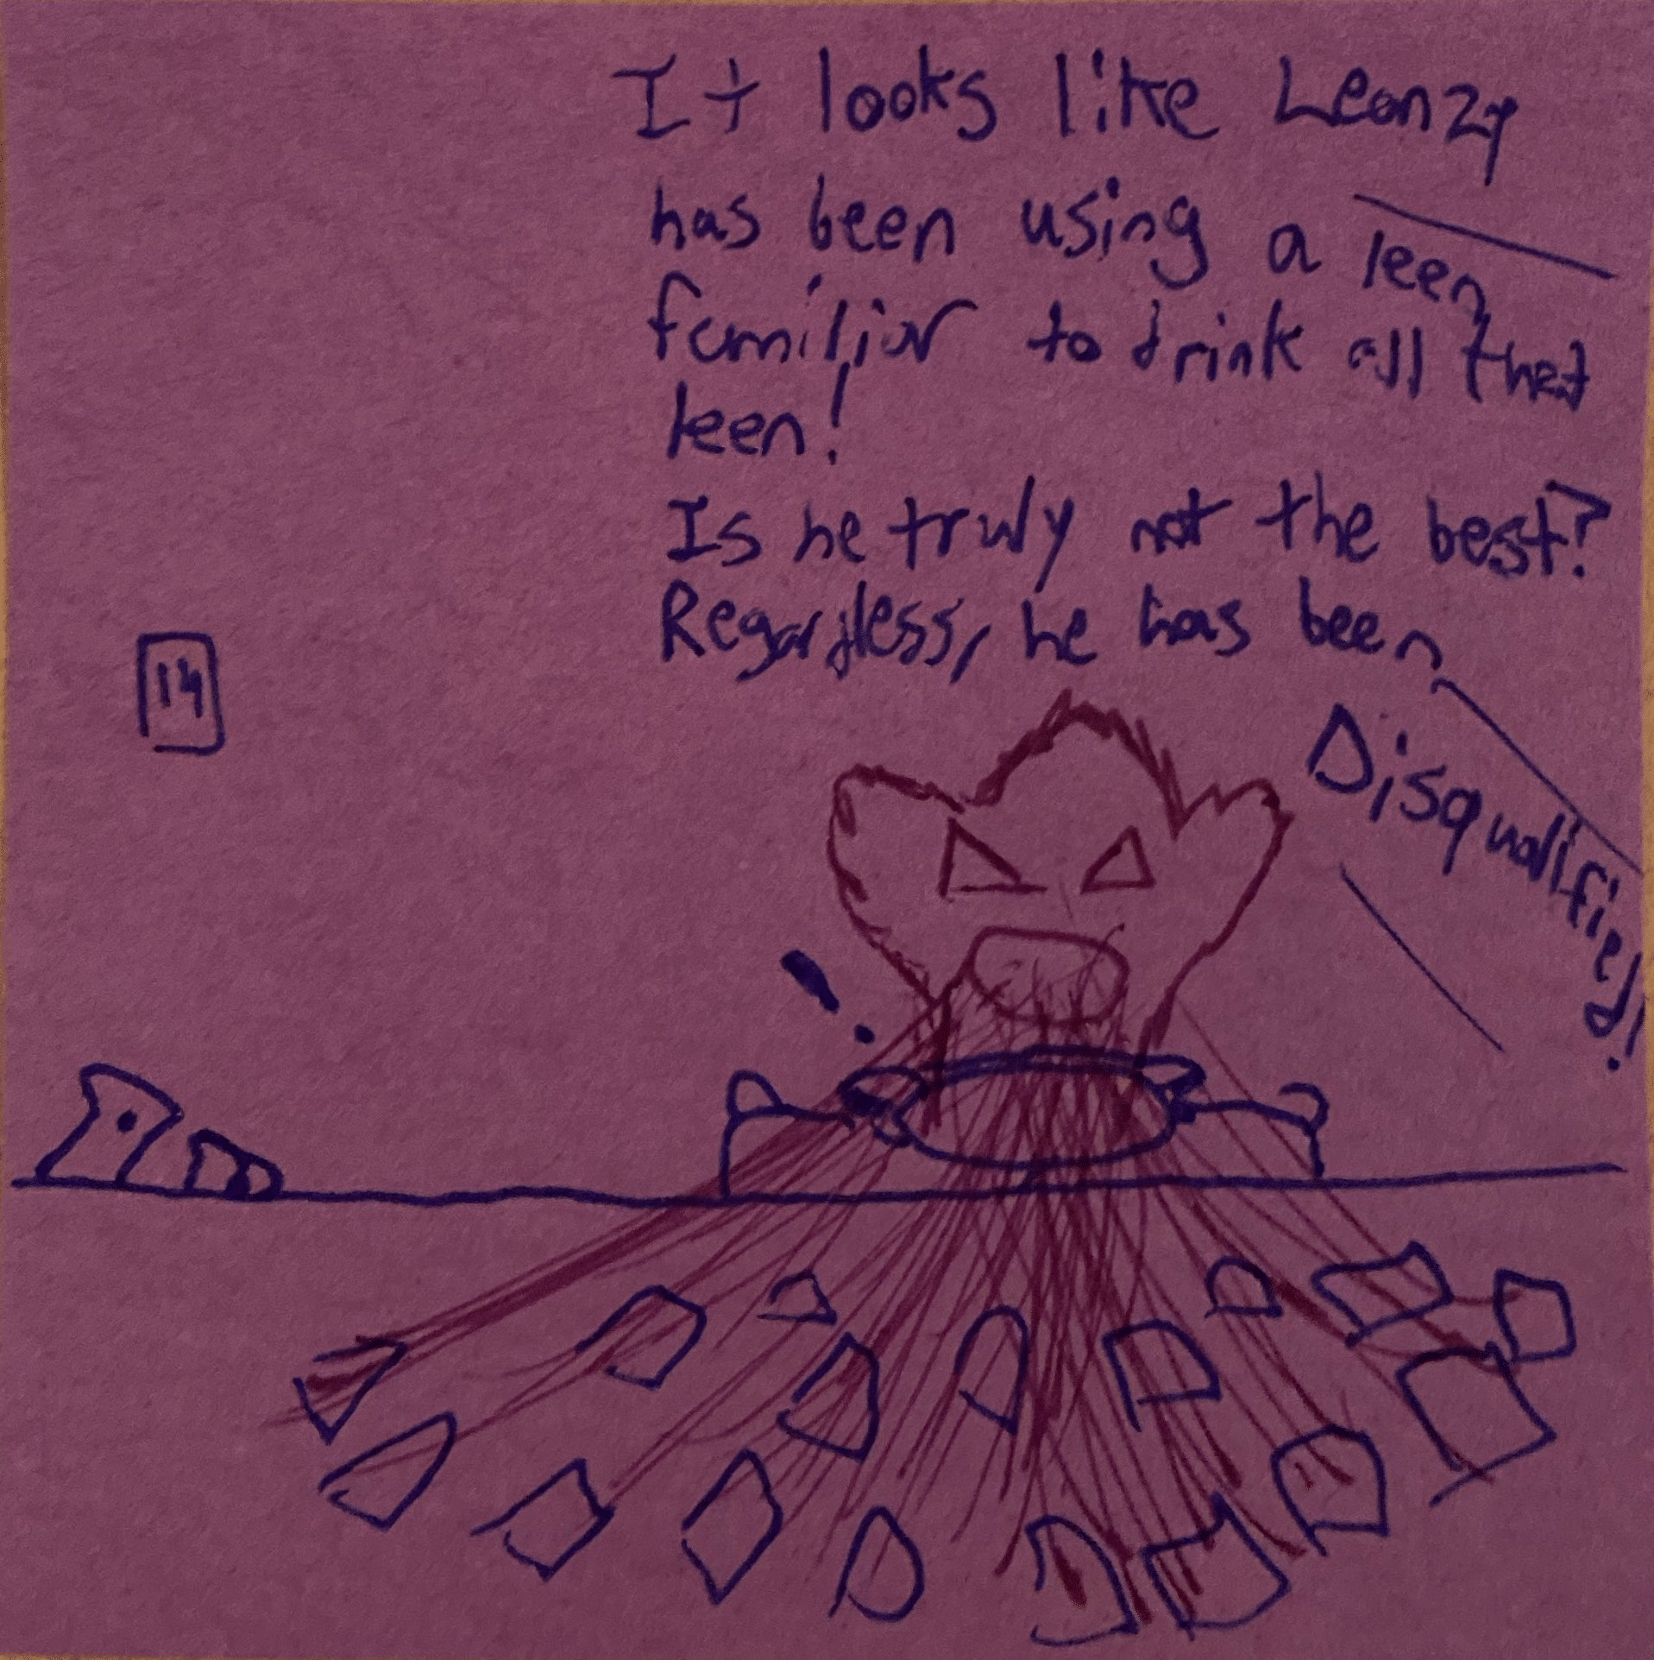 It looks like Leanzy
has been using a leen
familiar to drink all that
leen!
Is he truly not the best?
Regardless, he has been
Disqualified!
14
!